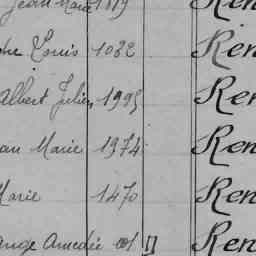 Jean Marie 1819 Ren
Louis 1022 Ren
Albert Julien 1995 Ren
an Marie 1374 Ren
Marie 1470 Ren
ange Amedée Ren